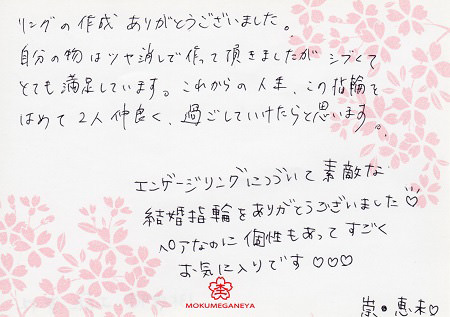 リングの作成 ありがとうございました。
自分の物はツヤ消しで作って頂きましたが シブくて
とても満足しています。これからの人生、この指輪を
はめて 2人仲良く、過ごしていけたらと思います。
エンゲージリングにつづいて素敵な
結婚指輪をありがとうございました♡
ペアなのに個性もあってすごく
お気に入りです♡♡♡
MOKUMEGANEYA
崇・恵未♡